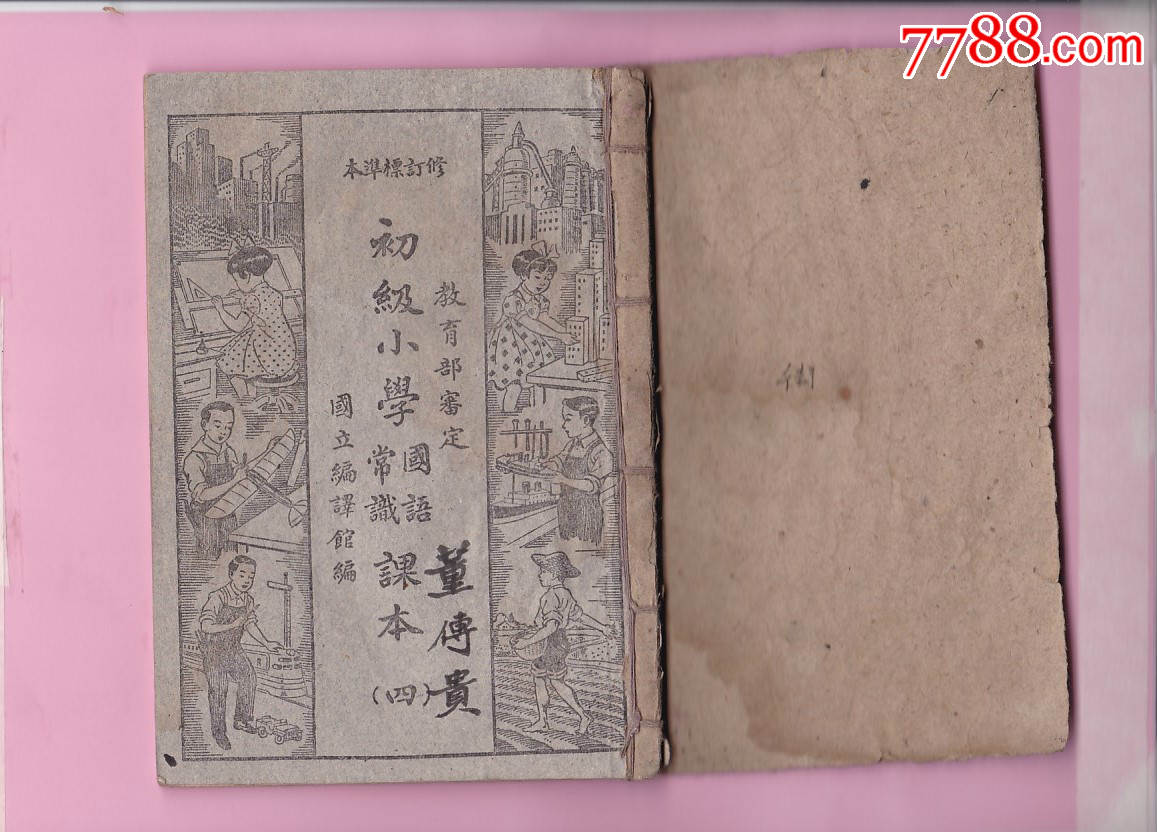 7788.com
修訂標準本
教育部審定
初級小學
國語
常識
課本
(四)
國立編譯館編
董傳貴